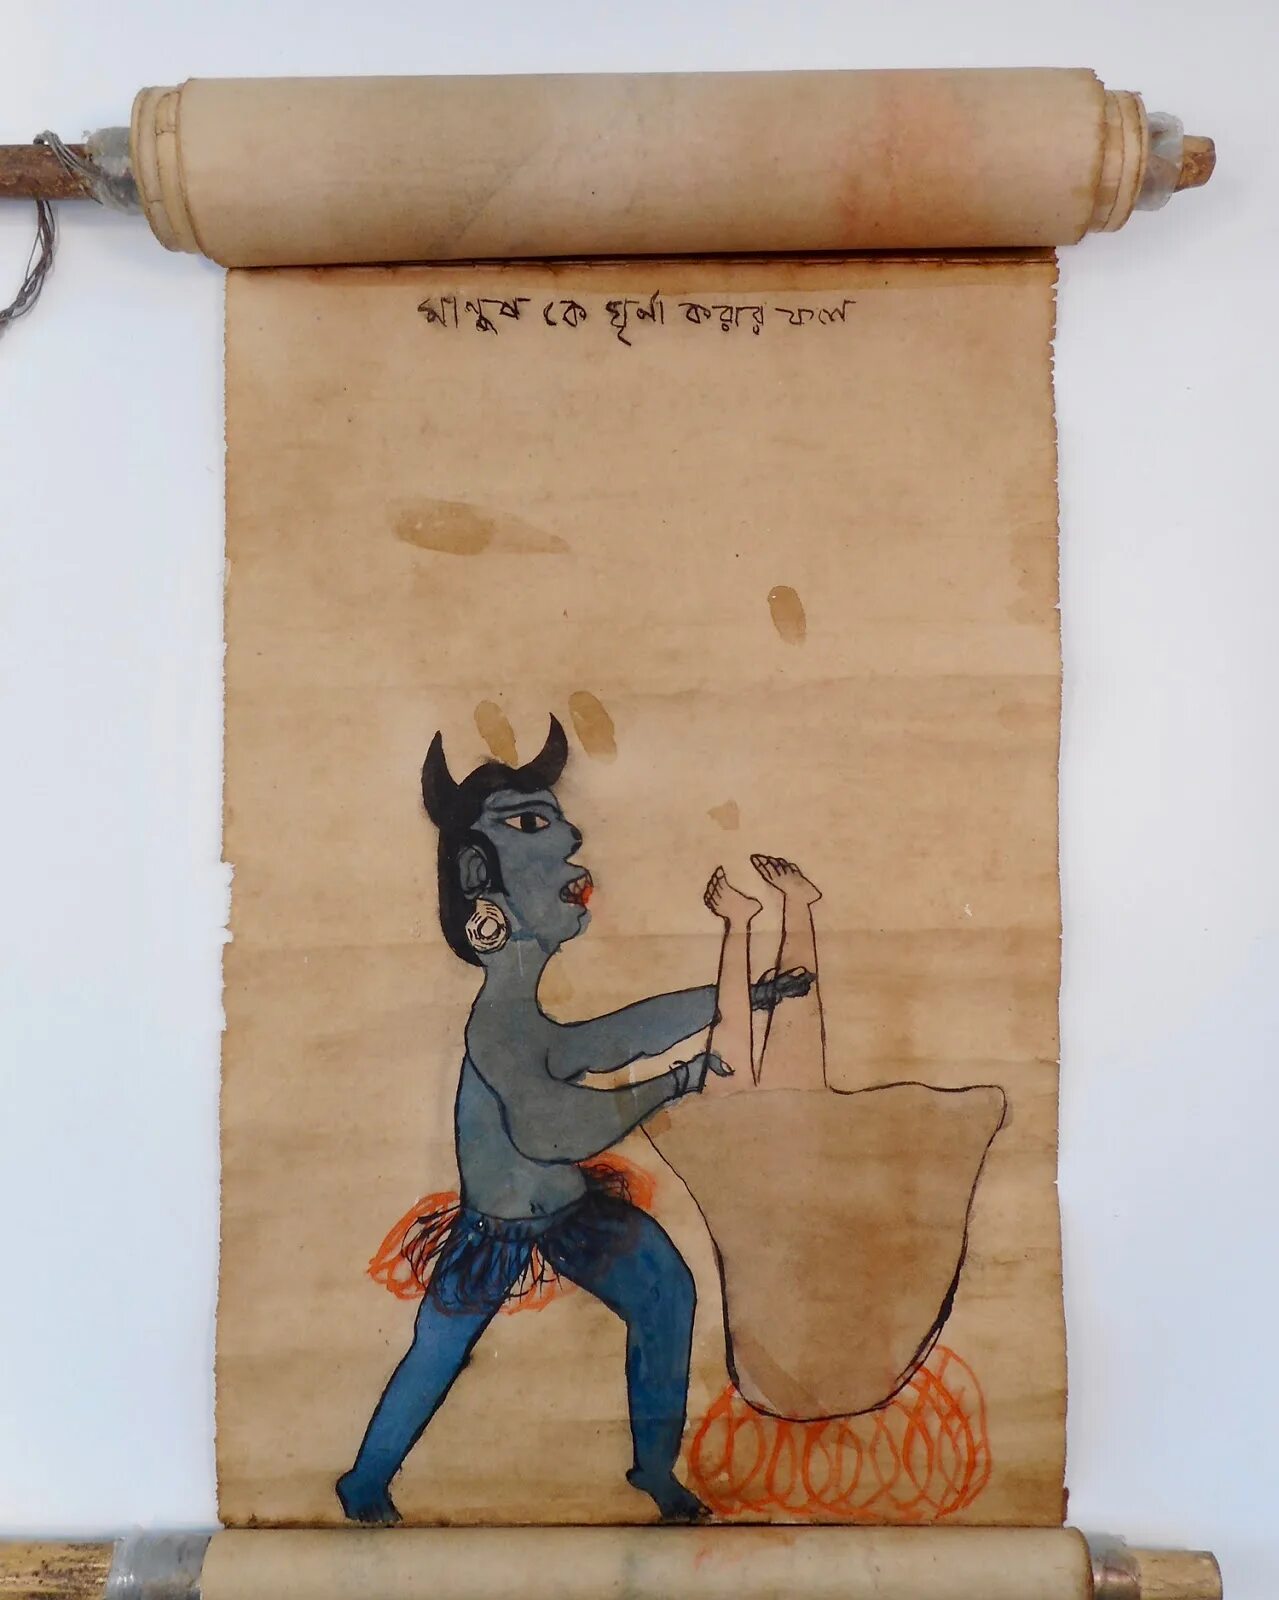 মানুষ কে ঘৃর্না করার ফলে